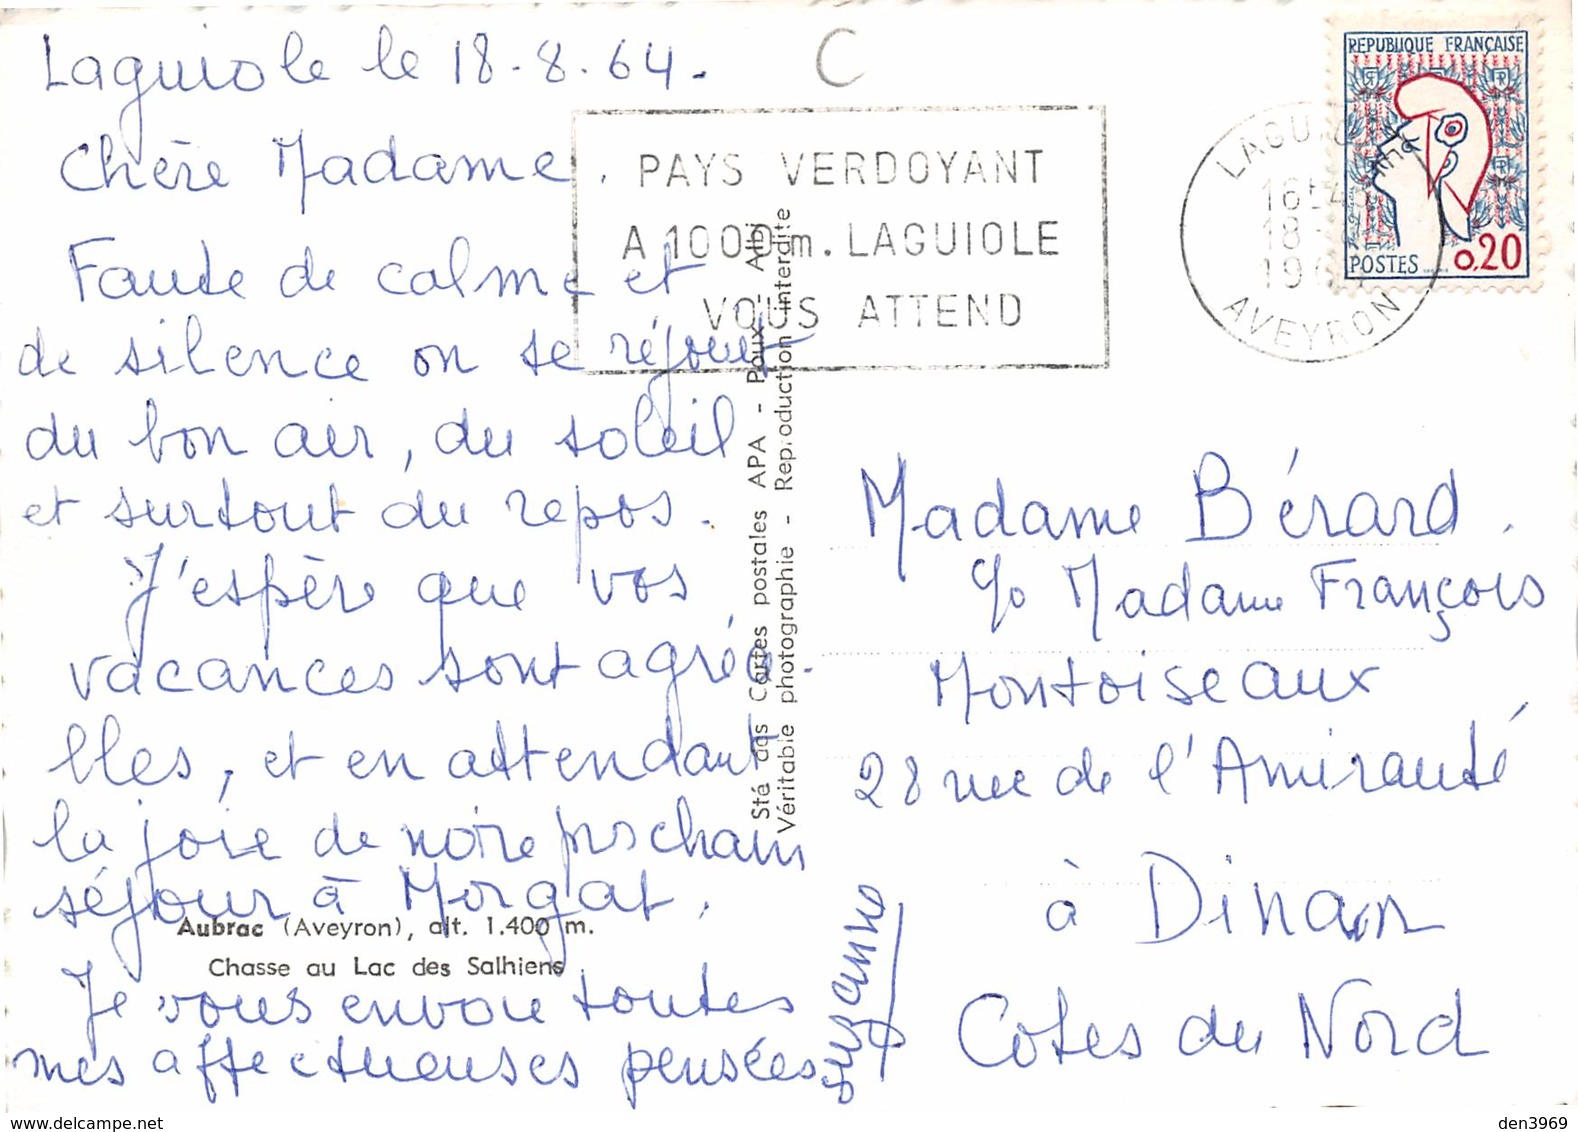 Laguiole le 18-8.64.
C
Chère Madame.
Faute de calme et
de silence on se réjouit
du bon air, du soleil
et surtout du repos.
J'espère que vos
vacances sont agréa-
bles, et en attendant
la joie de notre prochain
séjour à Morgat.
Je vous envoie toutes
mes affectueuses pensées
Suzanne
Aubrac (Aveyron), alt. 1.400 m.
Chasse au Lac des Salhiens
PAYS VERDOYANT
A 1000 m. LAGUIOLE
VOUS ATTEND
Sté des Cartes postales APA - Poux - Albi
Véritable photographie - Reproduction interdite
LAGUIO
18
AVEYRON
REPUBLIQUE FRANÇAISE
POSTES 0,20
Madame Bérard.
c/o Madame François
Montoiseaux
28 rue de l'Amirauté
à Dinan
Cotes du Nord
den3969